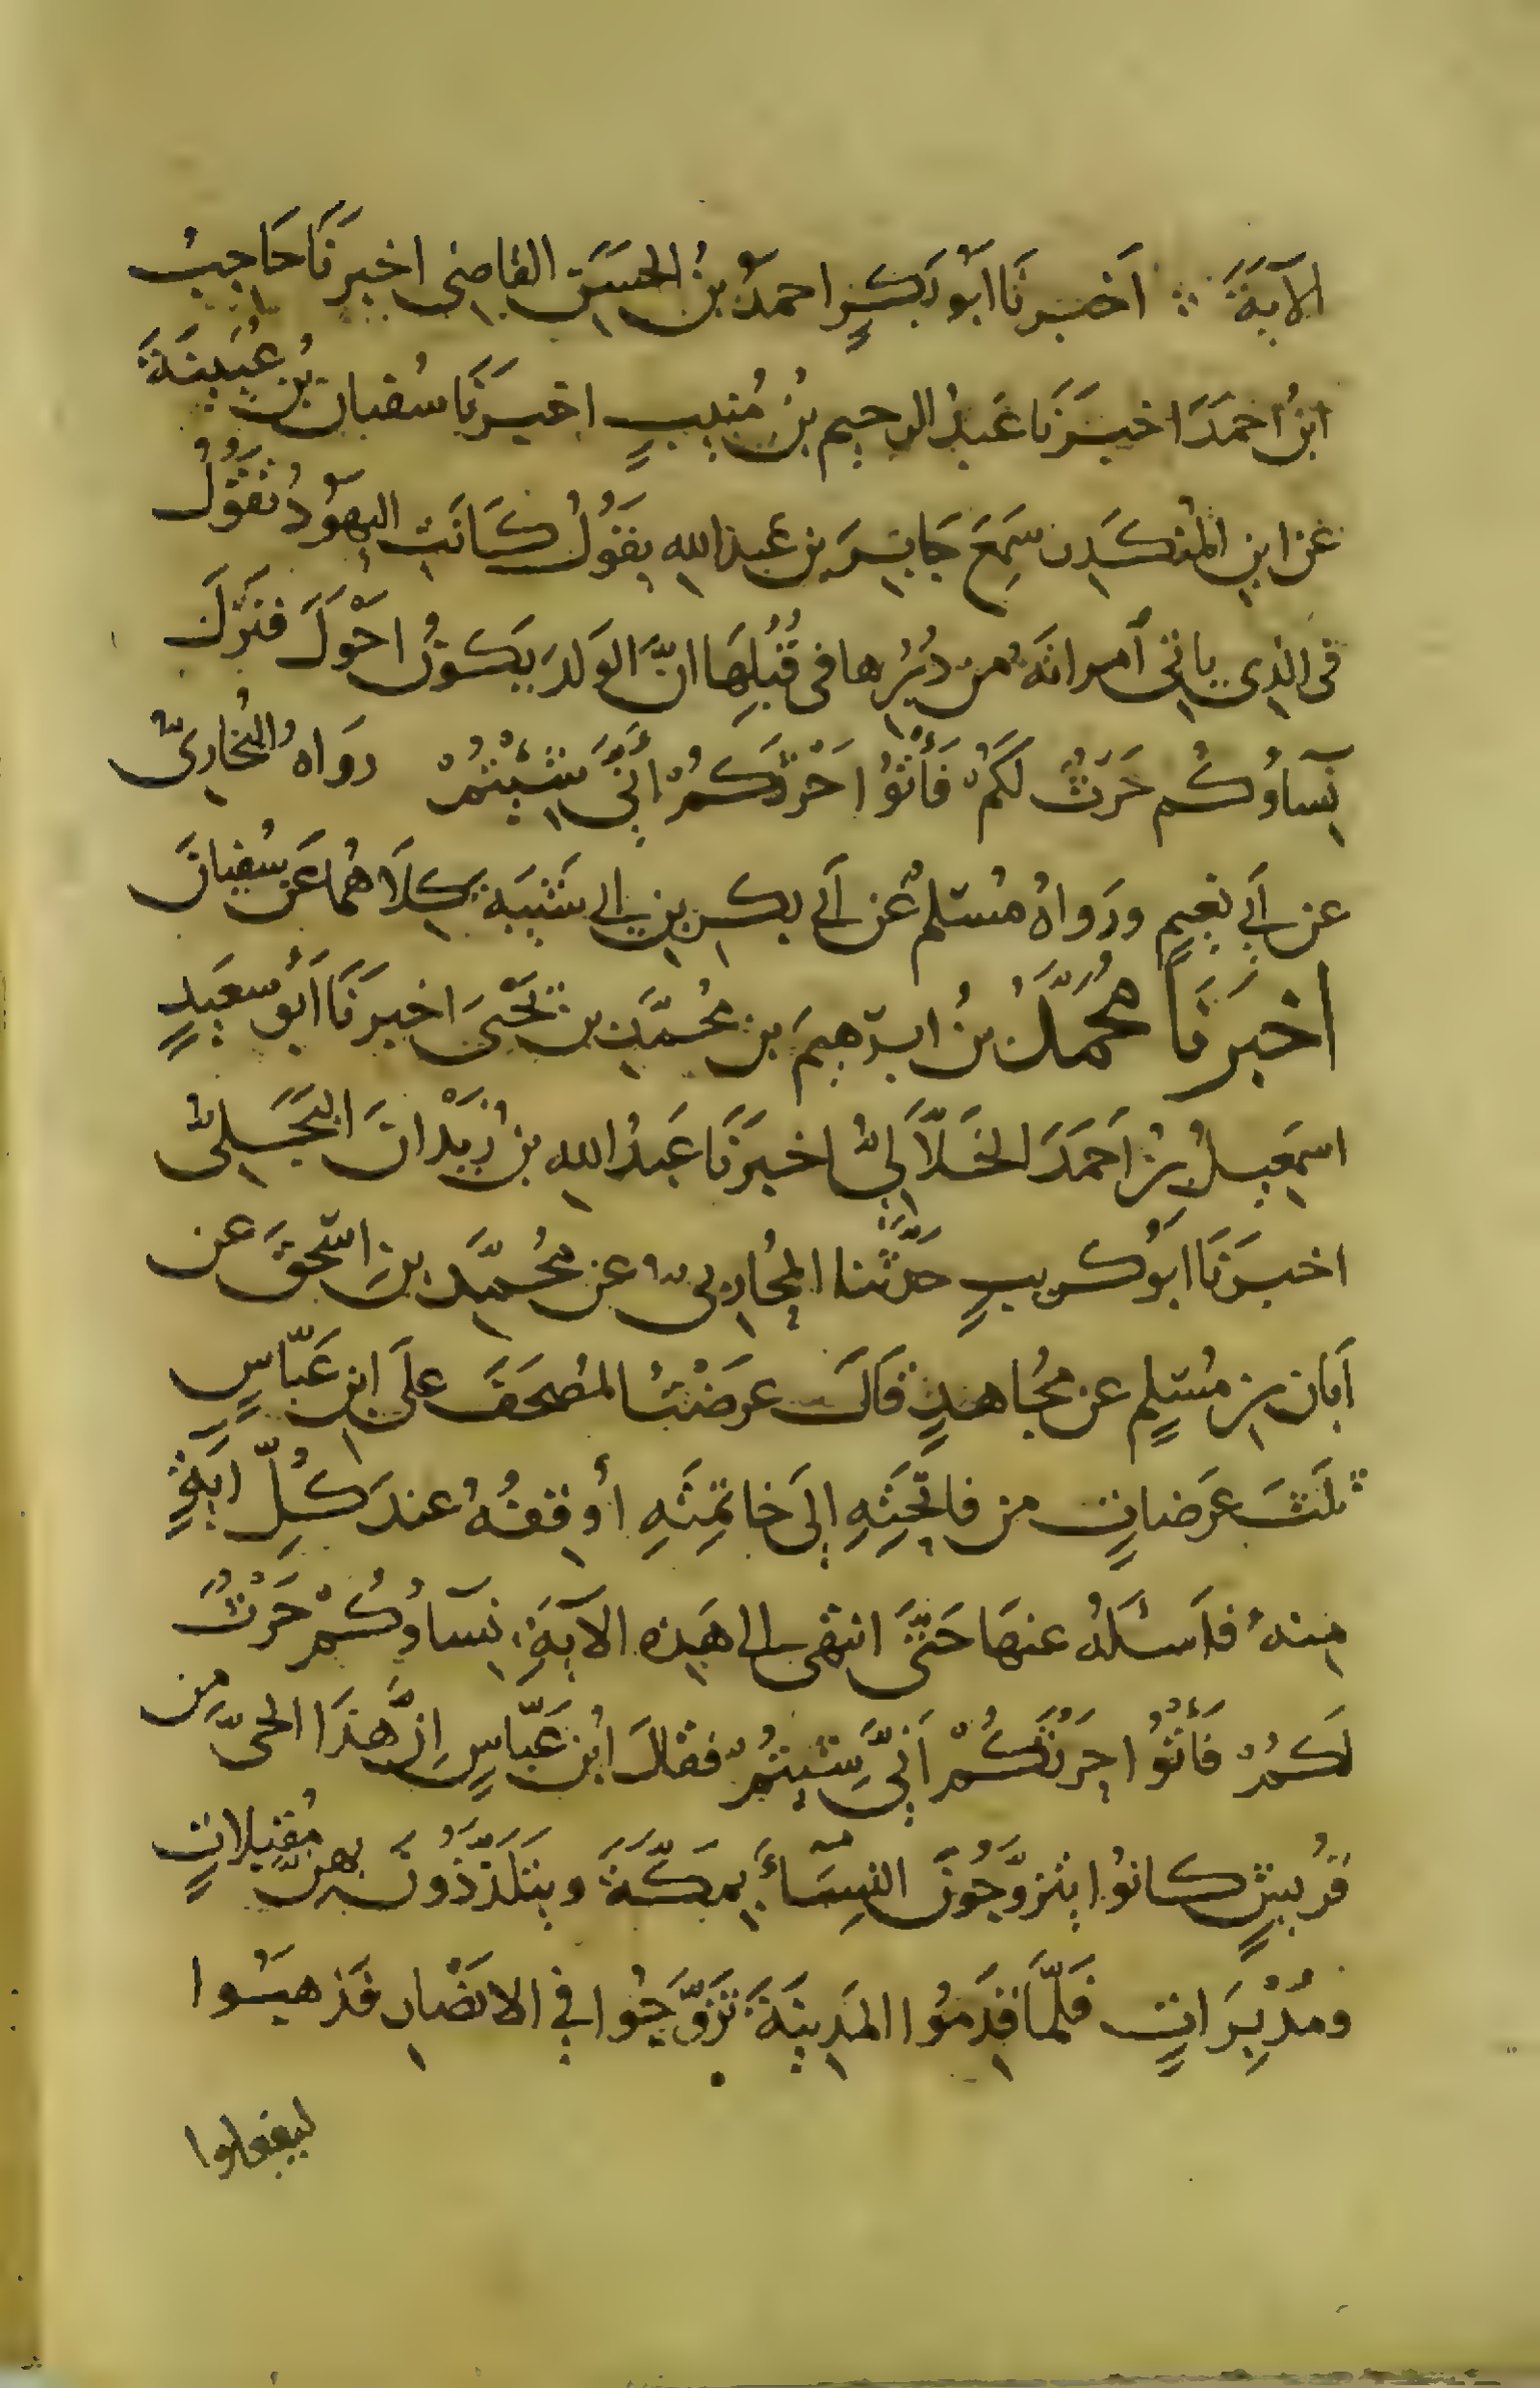 الآيَةَ ∴ اَخبرنَا ابُو بَكرٍ احمدُ بنُ الحسَنِ القاضِى اخبرنَا حَاجِبُ
ابنُ احمَدَ اخبرَنَا عَبدُ الرحيم بنُ مُنيبٍ اخبرَنَا سُفيان بنُ عُيَينَةَ
عن ابنِ المُنكَدِر سَمِعَ جَابِرَ بن عبدِ اللهِ يقَوُلُ كَانَتِ اليهَوُدُ تَقَوُلُ
فى الذِى ياتِى أمراتَهُ من دُبُرِها فى قُبُلِهَا انَّ الوَلدَ يَكوُنُ احْوَلَ فنَزَلَ
نِسآوُكُم حَرَثٌ لَكُمْ فَأْتُوْا حَرْثَكُمْ أَنَّى شِئْتُمْ رَوَاهُ البُخَارِىُّ
عن اَبِى نعيمٍ ورَواهُ مُسْلمٌ عَن اَبى بكرِ بنِ ابى شَيْبَةَ كِلَاهُمَا عَن سُفيانَ
اخبَرَنَا مُحَمَّدُ بنُ ابرٰهيمَ بن مُحَمَّدِ بن يَحْيىَ اخبرَنَا اَبُو سعَيدٍ
اسمٰعِيلُ بنُ اَحَمَدَ الخَلَّالِىُّ اخبَرَنَا عَبدُ اللهِ بنُ زَيْدَانَ البَجَلِىُّ
اخبرَنَا ابُو كُريبٍ حَدَّثَنا المُحَارِبىُّ عن مُحَمَّدِ بنِ اِسْحٰقَ عن
اَبَان بنِ مُسْلِمٍ عن مُجَاهدٍ قَالَ عرَضْتُ المُصحَفَ علَى ابنِ عَبّاسٍ
ثَلَثَ عَرَضاتٍ من فاتِحَتِهِ اِلىَ خاتمِتَهِ أوقِفهُ عندَ كُلِّ ايَةٍ
مِنهُ فاَسئَلُهُ عنهَا حَتَّى انتهى الى هَذِه الآيَةِ نِسآوُكُمْ حَرْثٌ
لَكُمْ فَأْتُوْا حَرْثَكُمْ اَنَّى شِئتُمْ فقالَ ابنُ عَبّاسٍ اِنَّ هذَا الحىَّ من
قُريشٍ كانوُا يتزوَّجُونَ النِسَآءَ بِمَكَّةَ ويَتَلَذَّذُونَ بِهنَّ مُقبِلاتٍ
ومُدْبِرَاتٍ فَلمَّا قدِمَوُا المَدِينَةَ تَزَوَّجَوُا فِي الانصَارِ فذَهبَوُا
ليفعلوا